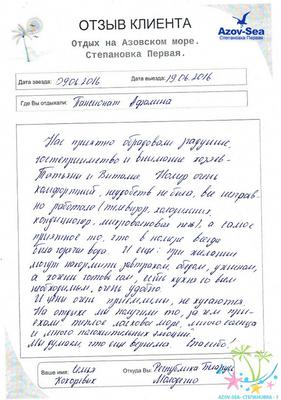 ОТЗЫВ КЛИЕНТА
Azov-Sea
Степановка Первая
Отдых на Азовском море.
Степановка Первая.
Дата заезда: 09.06.2016 Дата выезда: 19.06.2016
Где Вы отдыхали: Пансионат Адомина
Нас приятно обрадовали радушие,
гостеприимство и внимание хозяев-
Татьяны и Виталия. Номер очень
комфортный, неудобств не было, все исправ-
но работало (телевизор, холодильник,
кондиционер, микроволновая печь), а самое
приятное то, что в номере всегда
была горячая вода. И еще: при желании
могут накормить завтраком, обедом, ужином,
а хочешь готовь сам, есть кухня со всем
необходимым, очень удобно.
И цены очень приемлемы, не кусаются.
На отдыхе мы получили то, за чем при-
ехали: теплое ласковое море, много солнца
и много положительных эмоций.
Мы думаем, что еще вернемся. Спасибо!
Ваше имя: Семья Откуда Вы: Республика Беларусь
Молодечно
AZOV-SEA-СТЕПАНОВКА-1